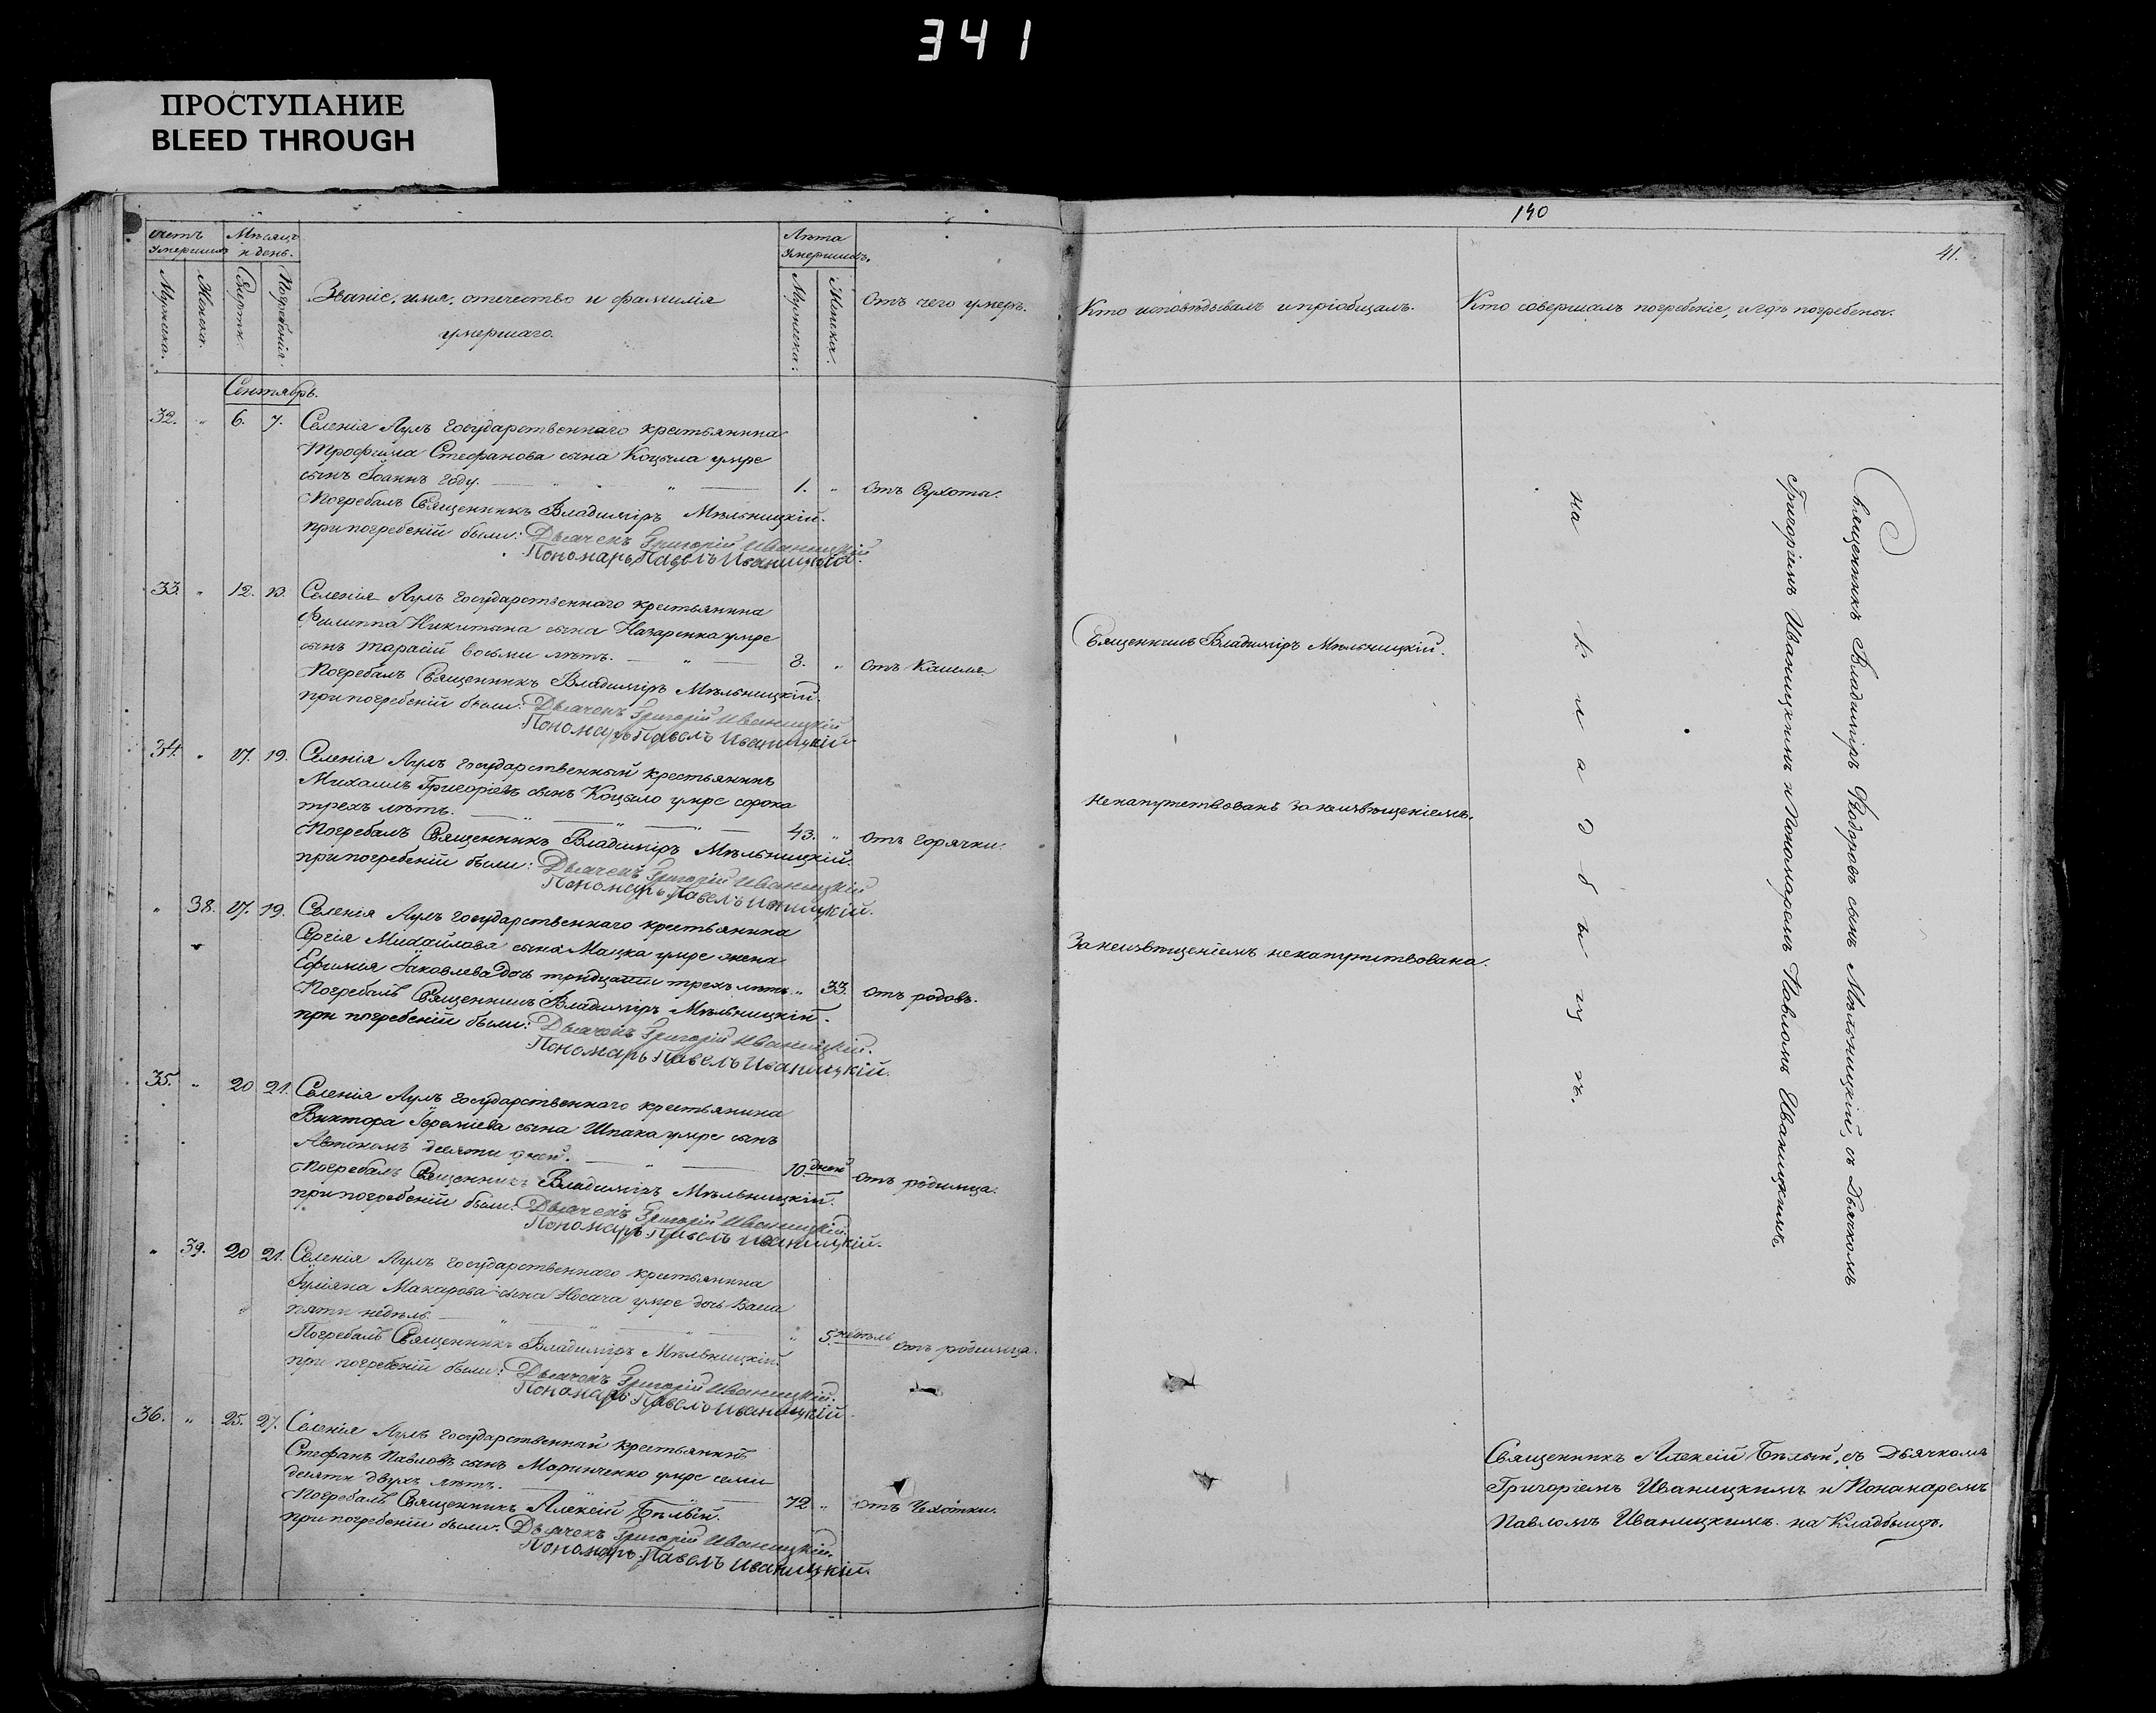 341
ПРОСТУПАНИЕ
BLEED THROUGH
140
41.
счетъ умершихъ
Мѣсяцъ и день.
Лѣта умершихъ.
Мужеска.
Женска.
Смерти.
Погребенія.
Званіе, имя, отечество и фамилія
умершаго.
Мужеска.
Женска.
Отъ чего умеръ.
Кто исповѣдывалъ и пріобщалъ.
Кто совершалъ погребеніе, и гдѣ погребены.
Сентябрь.
32. " 6. 7. Селенія Аулъ государственнаго крестьянина
Трофима Стефанова сына Коцыла умре
сынъ Іоаннъ году. 1. " отъ Сухоты.
Погребалъ Священникъ Владиміръ Мѣльницкій.
при погребеніи были: Дьячекъ Григорій Иваницкій
Пономарь Павелъ Иваницкій.
33. " 12. 13. Селенія Аулъ государственнаго крестьянина
Филиппа Никитина сына Назаренка умре
сынъ Тарасій восьми лѣтъ. 8. " отъ Кашля
Священникъ Владиміръ Мѣльницкій.
Погребалъ Священникъ Владиміръ Мѣльницкій.
при погребеніи были: Дьячекъ Григорій Иваницкій
Пономарь Павелъ Иваницкій
34. " 17. 19. Селенія Аулъ государственный крестьянинъ
Михаилъ Григоріевъ сынъ Коцыло умре сорока
трехъ лѣтъ. 43. " отъ горячки.
Ненапутствованъ за неизвѣщеніемъ.
Погребалъ Священникъ Владиміръ Мѣльницкій.
при погребеніи были: Дьячекъ Григорій Иваницкій
Пономарь Павелъ Иваницкій.
" 38. 17. 19. Селенія Аулъ государственнаго крестьянина
Сергія Михайлова сына Мацка умре жена
Ефимія Іаковлева дочь тридцати трехъ лѣтъ. " 33. отъ родовъ.
За неизвѣщеніемъ ненапутствована.
Погребалъ Священникъ Владиміръ Мѣльницкій.
при погребеніи были: Дьячекъ Григорій Иваницкій.
Пономарь Павелъ Иваницкій.
35. " 20 21. Селенія Аулъ государственнаго крестьянина
Виктора Іереміева сына Шпака умре сынъ
Автономъ десяти дней. 10. дней отъ родимца.
Погребалъ Священникъ Владиміръ Мѣльницкій.
при погребеніи были: Дьячекъ Григорій Иваницкій.
Пономарь Павелъ Иваницкій.
" 39. 20 21. Селенія Аулъ государственнаго крестьянина
Іуліяна Макарова сына Носача умре дочь
пяти недѣль. " 5. недѣль отъ родимца.
Погребалъ Священникъ Владиміръ Мѣльницкій.
при погребеніи были: Дьячекъ Григорій Иваницкій.
Пономарь Павелъ Иваницкій
36. " 25. 27. Селенія Аулъ государственный крестьянинъ
Стефанъ Павловъ сынъ Маринченко умре семи
десяти двухъ лѣтъ. 72 " отъ Чахотки.
Погребалъ Священникъ Алексій Бѣлый.
при погребеніи были: Дьячекъ Григорій Иваницкій.
Пономарь Павелъ Иваницкій.
Священникъ Владиміръ Федоровъ сынъ Мѣльницкій, съ Дьячкомъ
Григоріемъ Иваницкимъ и Пономаремъ Павломъ Иваницкимъ.
на кладбыщѣ.
Священникъ Алексій Бѣлый, съ Дьячкомъ
Григоріемъ Иваницкимъ и Понамаремъ
Павломъ Иваницкимъ. на Кладбыщѣ.